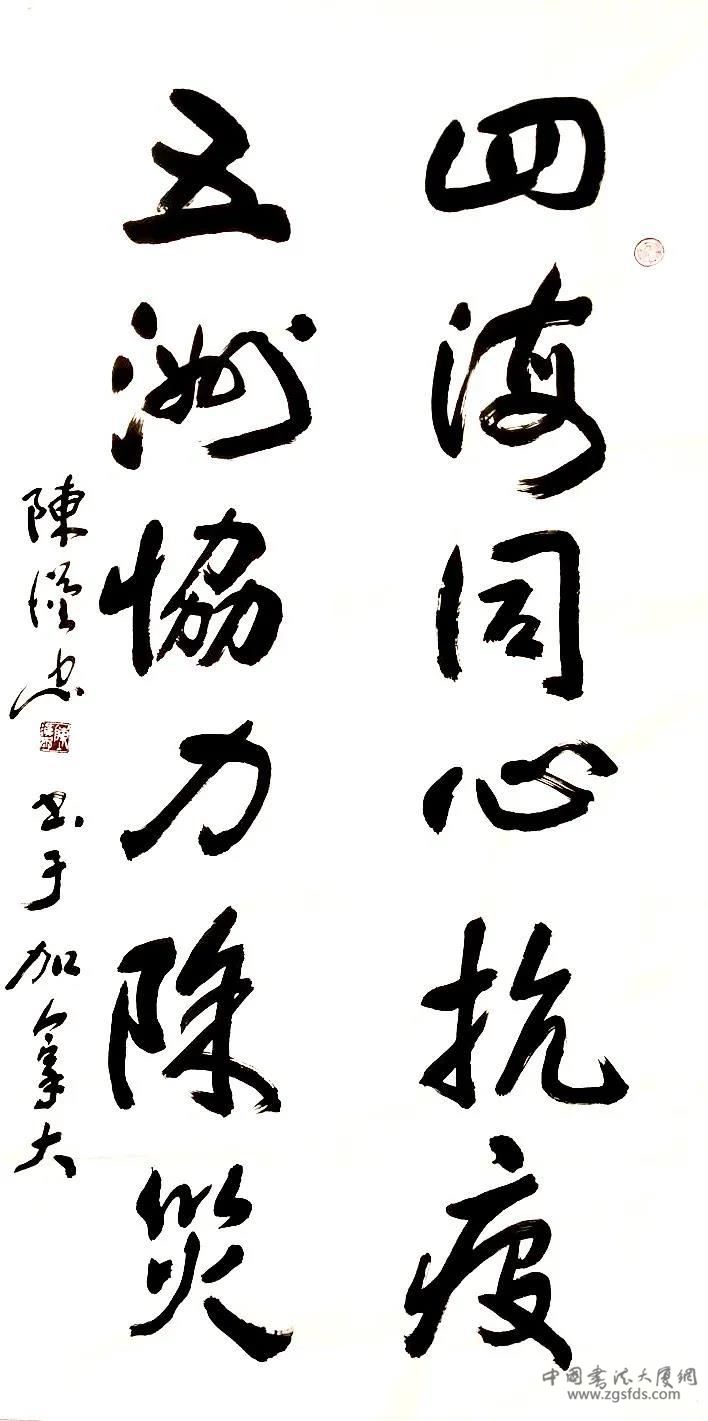 四海同心抗疫
五洲恊力除災
陳漢忠
书于加拿大
中國書法大廈網
www.zgsfds.com